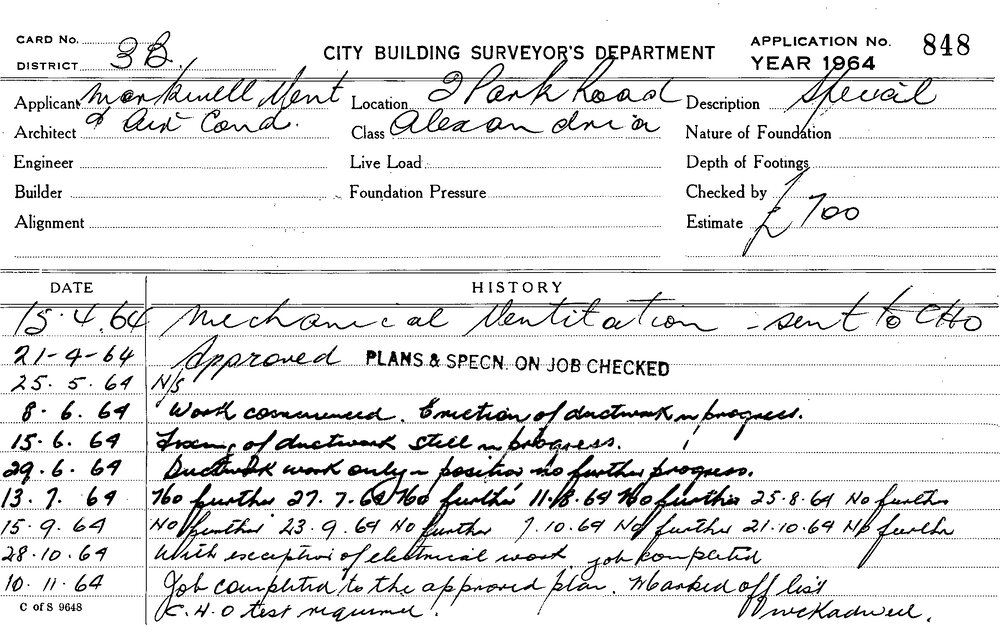 CARD No.
DISTRICT 3B.
CITY BUILDING SURVEYOR'S DEPARTMENT
APPLICATION No. 848
YEAR 1964
Applicant Markwell Vent Location 2 Park Road Description Special
Architect & Air Cond. Class Alexandria Nature of Foundation
Engineer Live Load Depth of Footings
Builder Foundation Pressure Checked by
Alignment Estimate £700
DATE HISTORY
15.4.64 Mechanical Ventilation - sent to CHO
21-4-64 Approved PLANS & SPECN. ON JOB CHECKED
25.5.64 N/S
8.6.64 Work commenced. Erection of ductwork in progress.
15.6.64 Fixing of ductwork still in progress.
29.6.64 Ductwork work only in position no further progress.
13.7.64 No further 27.7.64 No further 11.8.64 No further 25.8.64 No further
15.9.64 No further 23.9.64 No further 7.10.64 No further 21.10.64 No further
28.10.64 With exception of electrical work job completed
10.11.64 Job completed to the approved plan. Marked off list
C of S 9648 C.H.O test required.